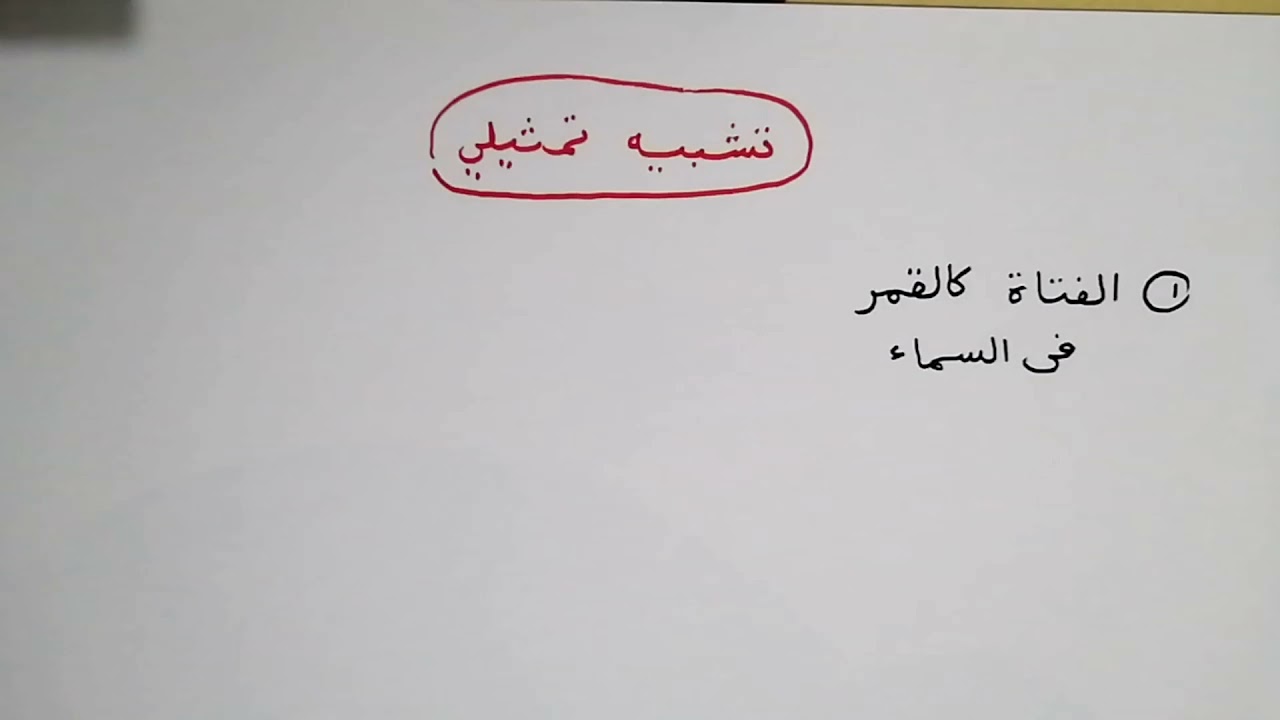 تشبيه تمثيلي
١ الفتاة كالقمر
فى السماء